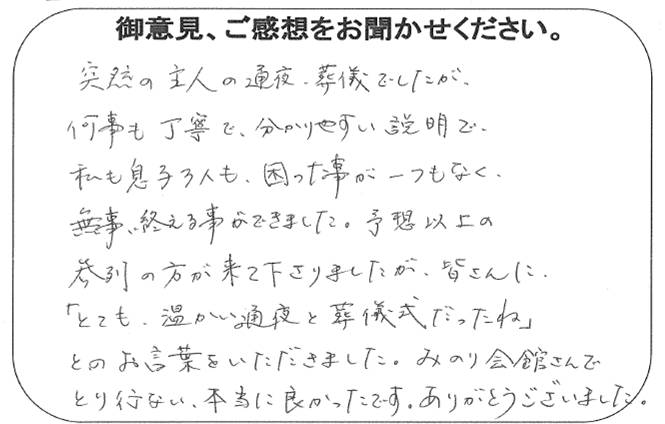 御意見、ご感想をお聞かせください。
突然の主人の通夜、葬儀でしたが、
何事も丁寧で、分かりやすい説明で、
私も息子3人も、困った事が一つもなく、
無事、終える事ができました。予想以上の
参列の方が来て下さりましたが、皆さんに、
「とても、温かい通夜と葬儀式だったね」
とのお言葉をいただきました。みのり会館さんで
とり行ない、本当に良かったです。ありがとうございました。